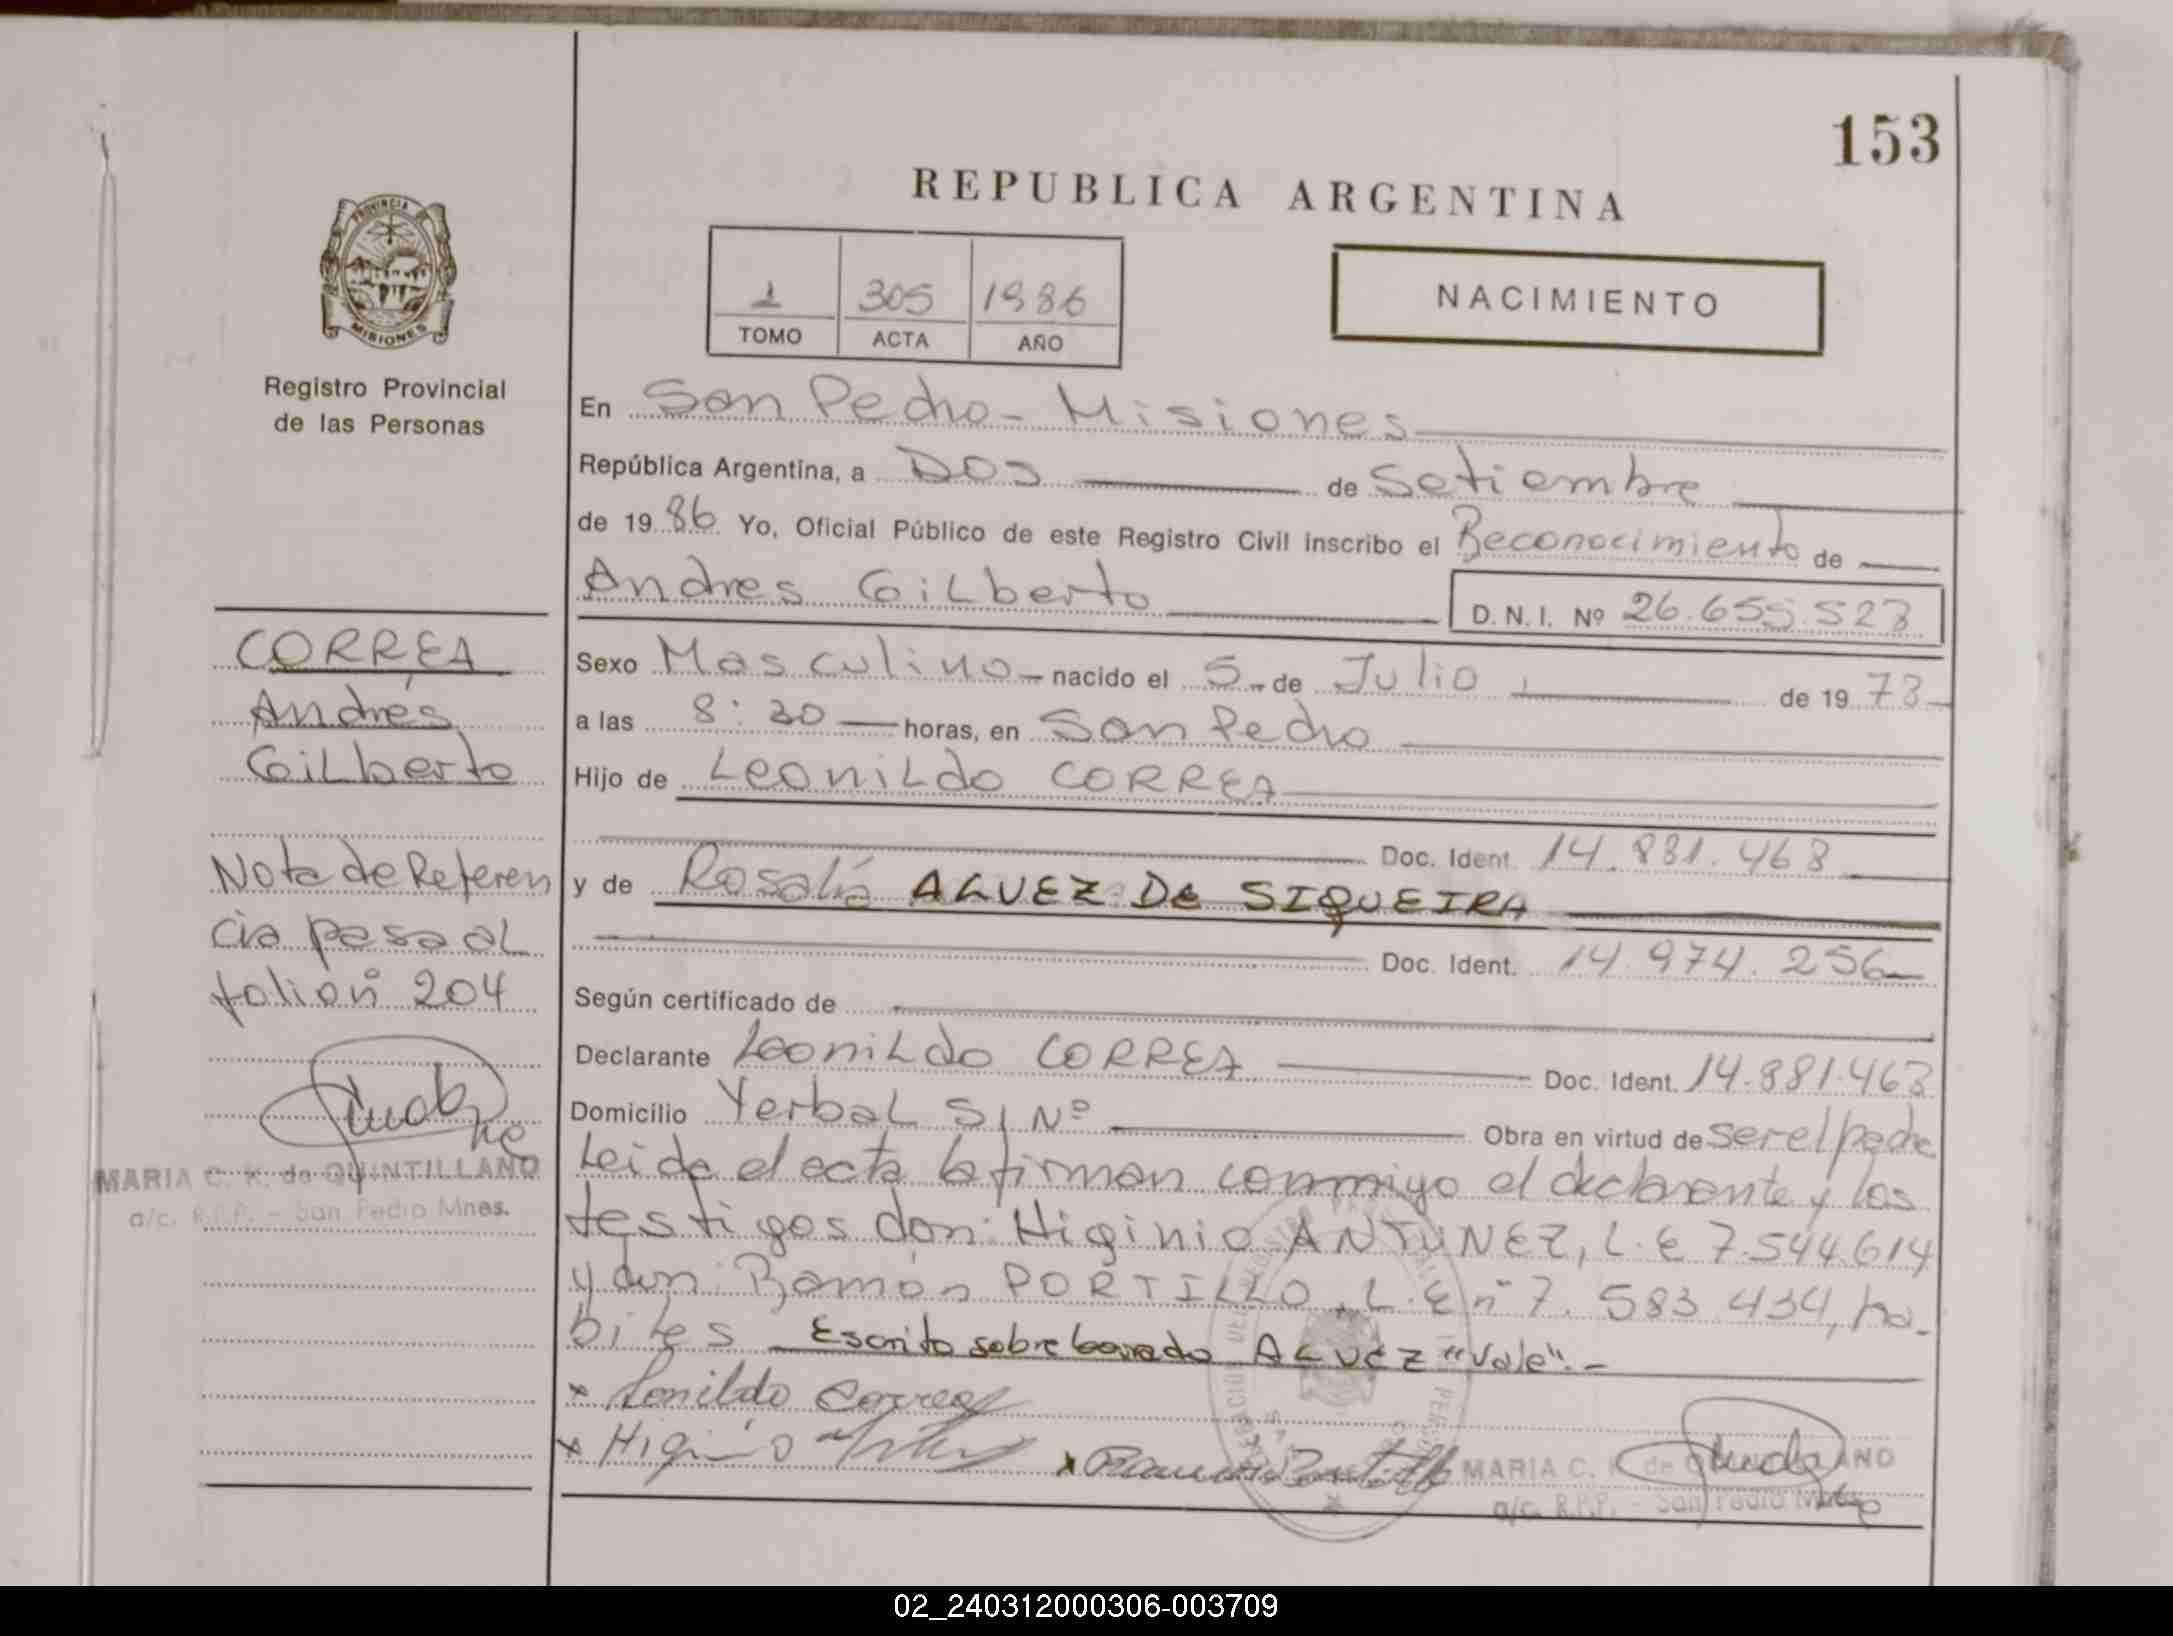 153
REPUBLICA ARGENTINA
PROVINCIA DE
MISIONES
Registro Provincial
de las Personas
1 305 1986
TOMO ACTA AÑO
NACIMIENTO
En San Pedro - Misiones
República Argentina, a Dos de Setiembre
de 1986 Yo, Oficial Público de este Registro Civil inscribo el Reconocimiento de
Andres Gilberto D.N.I. Nº 26.655.523
Sexo Masculino - nacido el 5 - de Julio de 1973
a las 8:30 horas, en San Pedro
Hijo de Leonildo CORREA
Doc. Ident. 14.881.463
y de Rosalía ALVEZ DE SIQUEIRA
Doc. Ident. 14.974.256
Según certificado de
Declarante Leonildo CORREA Doc. Ident. 14.881.463
Domicilio Yerbal S/Nº Obra en virtud de ser el padre
Leida el acta la firman conmigo el declarante y los
testigos don: Higinio ANTUNEZ, L.E 7.544.614
y don: Ramón PORTILLO, L.E nº 7.583.434, ha-
biles Escrito sobre borrado ALVEZ "Vale".-
x Lonildo Correa
x Higinio
x Ramon Portillo
MARIA C. K. de QUINTILLANO
a/c. R.P.P. - San Pedro Mnes.
CORREA
Andrés
Gilberto
Nota de Referen
cia pasa al
folio nº 204
MARIA C. K. de QUINTILLANO
a/c. R.P.P. - San Pedro Mnes.
02_240312000306-003709